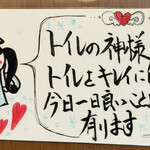 トイレの神様
トイレをキレイに
今日一日良いこと
有ります